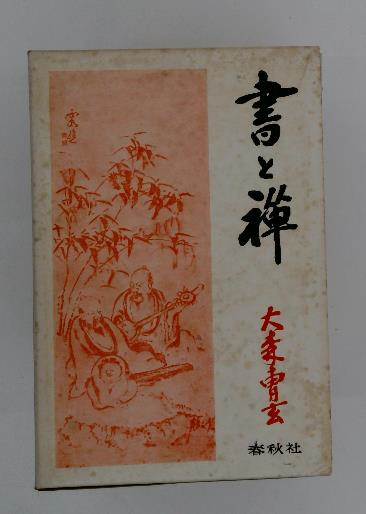 書と禅
大森曹玄
春秋社